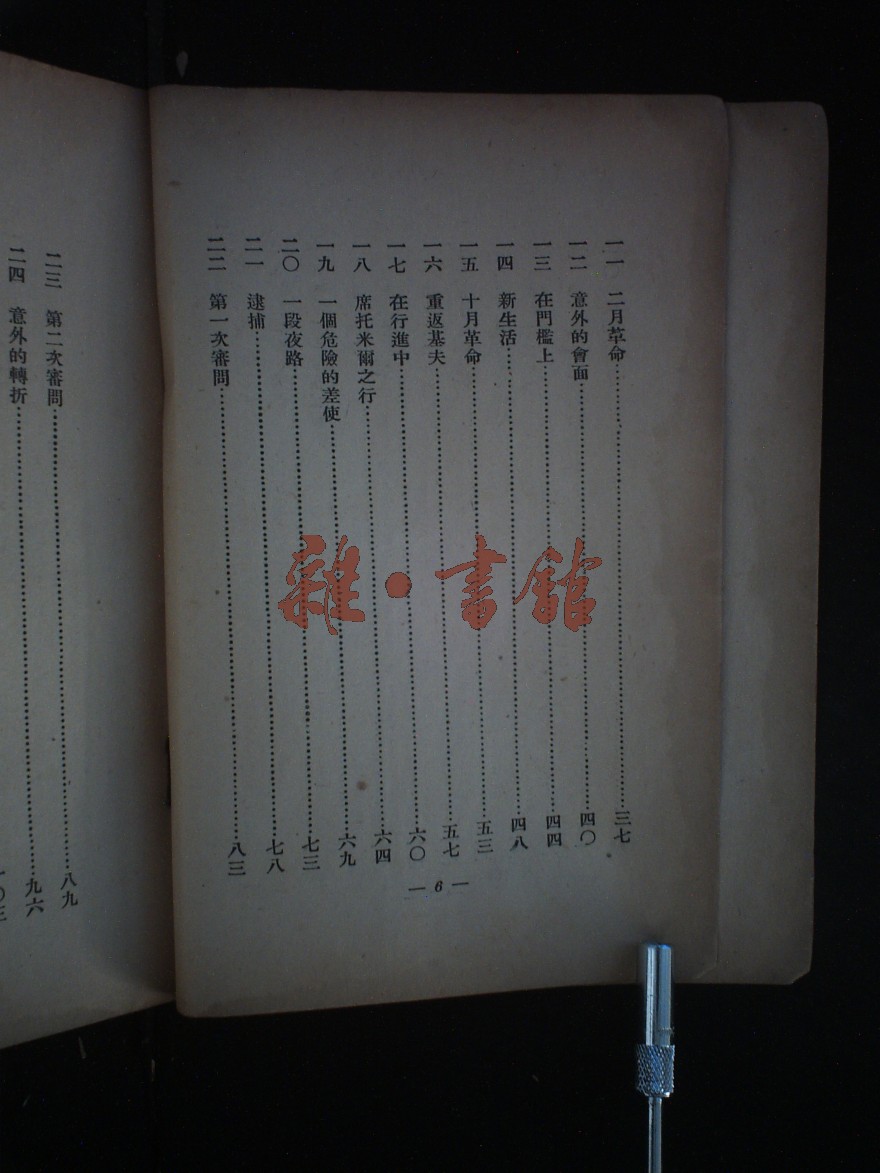 一一 二月革命……三七
一二 意外的會面……四〇
一三 在門檻上……四四
一四 新生活……四八
一五 十月革命……五三
一六 重返基夫……五七
一七 在行進中……六〇
一八 席托米爾之行……六四
一九 一個危險的差使……六九
二〇 一段夜路……七三
二一 逮捕……七八
二二 第一次審問……八三
— 6 —
二三 第二次審問……八九
二四 意外的轉折……九六
雜·書館